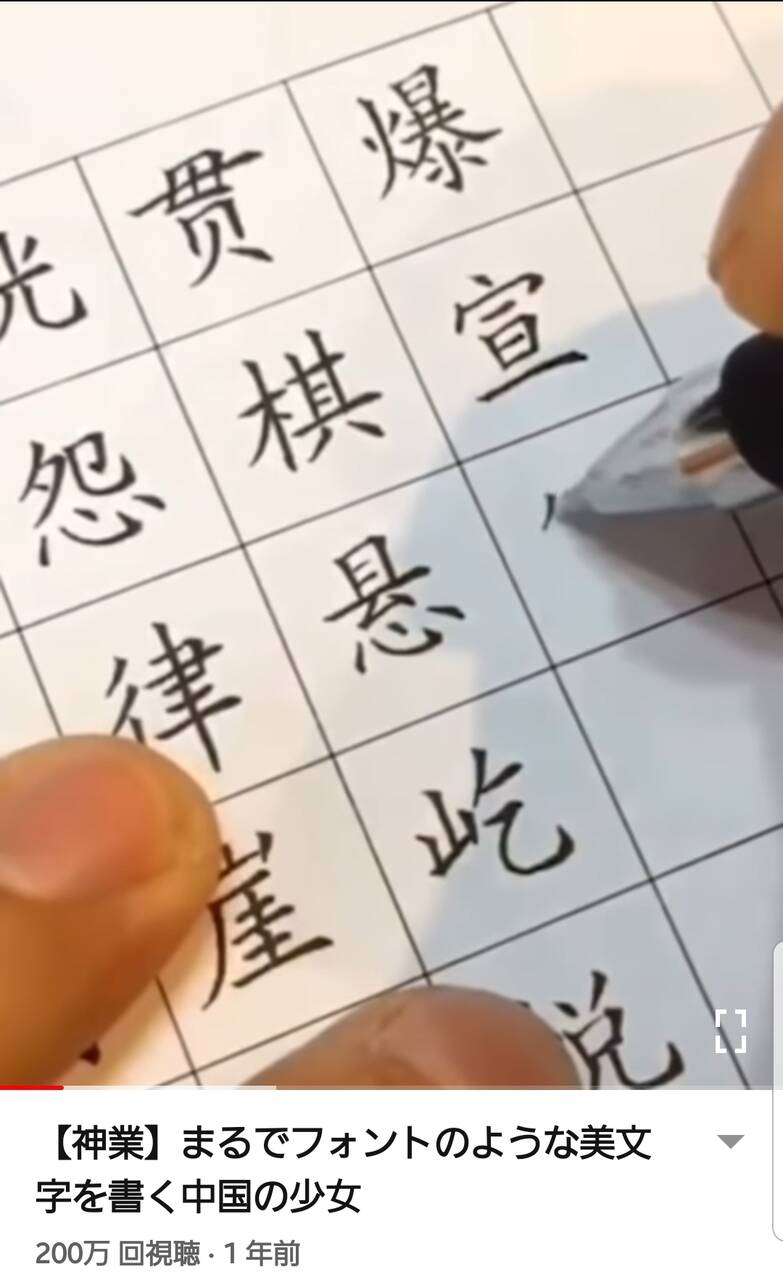 光 贯 爆
怨 棋 宣
律 悬
崖 屹
【神業】まるでフォントのような美文
字を書く中国の少女
200万 回視聴 · 1 年前